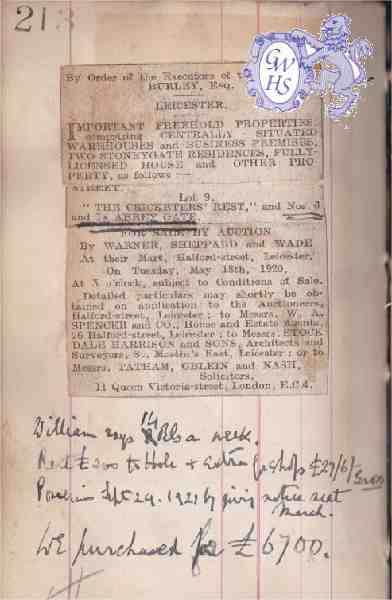 213
GWHS
By Order of the Executors of
BURLEY, Esq.
LEICESTER.
IMPORTANT FREEHOLD PROPERTIES,
comprising CENTRALLY SITUATED
WAREHOUSES and BUSINESS PREMISES,
TWO STONEYGATE RESIDENCES, FULLY-
LICENSED HOUSE and OTHER PRO-
PERTY, as follows:—
STREET.
Lot 9.
"THE CRICKETERS' REST," and Nos. 3
and ABBEY GATE
FOR SALE BY AUCTION
By WARNER, SHEPPARD and WADE
At their Mart, Halford-street, Leicester,
On Tuesday, May 18th, 1920,
At o'clock, subject to Conditions of Sale.
Detailed particulars may shortly be ob-
tained on application to the Auctioneers,
Halford-street, Leicester; to Messrs. W. A.
SPENCER and CO., House and Estate Agents,
26 Halford-street, Leicester; to Messrs. STOCK-
DALE HARRISON and SONS, Architects and
Surveyors, St. Martin's East, Leicester; or to
Messrs. TATHAM, OBLEIN and NASH,
Solicitors,
11 Queen Victoria-street, London, E.C.4.
William says 14 Bls a week.
Rent £200 to Hole + extra for shops £27/6/-
Possession Sept 29. 1921 by giving notice next
March.
WE purchased for £6700.